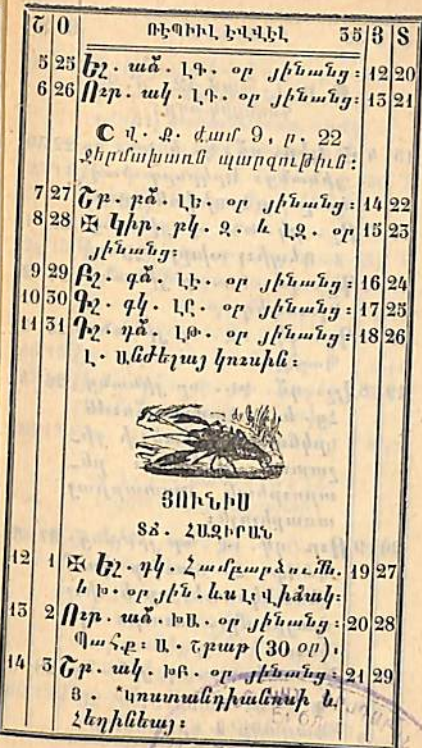 Շ Օ ՌԷՊԻՒԼ ԷՎՎԷԼ 35 Յ Տ
5 25 Եշ. աձ. ԼԳ. օր յինանց: 12 20
6 26 Ուր. ակ. ԼԴ. օր յինանց: 13 21
☾ վ. Ք. ժամ. 9, ր. 22
Ջերմախառն պարզութիւն:
7 27 Շբ. բձ. ԼԵ. օր յինանց: 14 22
8 28 ✠ Կիր. բկ. Զ. և ԼԶ. օր 15 23
յինանց:
9 29 Բշ. գձ. ԼԷ. օր յինանց: 16 24
10 30 Գշ. գկ. ԼԸ. օր յինանց: 17 25
11 31 Դշ. դձ. ԼԹ. օր յինանց: 18 26
Լ. Անժելայ կուսին:
ՅՈՒՆԻՍ
ՏՃ. ՀԱԶԻՐԱՆ
12 1 ✠ Եշ. դկ. Համբարձումն. 19 27
և Խ. օր յին. Վիճակ:
13 2 Ուր. աձ. ԽԱ. օր յինանց: 20 28
Պահք: Ա. Շրաբ (30 օր).
14 3 Շբ. ակ. ԽԲ. օր յինանց: 21 29
Յ. *Կոստանդիանոսի և
Հեղինեայ: